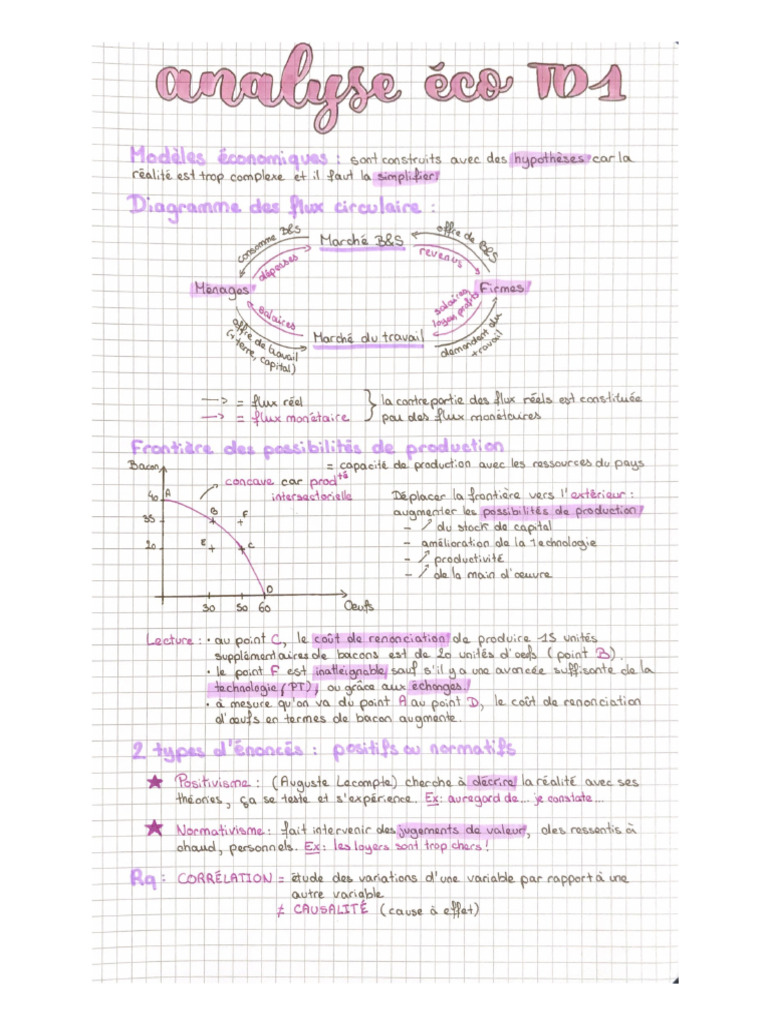 analyse éco TD1
Modèles économiques : sont construits avec des hypothèses car la
réalité est trop complexe et il faut la simplifier
Diagramme des flux circulaire :
consomme B&S
Marché B&S
offre de B&S
dépenses
revenus
Ménages
Firmes
salaires
salaires, loyer, profits
offre de travail
(+ terre, capital)
Marché du travail
demandent du
travail
--> = flux réel
--> = flux monétaire
} la contrepartie des flux réels est constituée
par des flux monétaires
Frontière des possibilités de production
= capacité de production avec les ressources du pays
Bacon
concave car prodté
intersectorielle
40 A
35
B
F
20
E
C
D
30 50 60
Oeufs
Déplacer la frontière vers l'extérieur :
augmenter les possibilités de production
- ↗ du stock de capital
- amélioration de la technologie
- ↗ productivité
- ↗ de la main d'œuvre
Lecture : • au point C, le coût de renonciation de produire 15 unités
supplémentaires de bacons est de 20 unités d'oefs (point B).
• le point F est inatteignable, sauf s'il y a une avancée suffisante de la
technologie (PT), ou grâce aux échanges.
• à mesure qu'on va du point A au point D, le coût de renonciation
d'œufs en termes de bacon augmente.
2 types d'énoncés : positifs ou normatifs
★ Positivisme : (Auguste Lecompte) cherche à décrire la réalité avec ses
théories, ça se teste et s'expérience. Ex : au regard de... je constate...
★ Normativisme : fait intervenir des jugements de valeur, des ressentis à
chaud, personnels. Ex : les loyers sont trop chers !
Rq : CORRÉLATION = étude des variations d'une variable par rapport à une
autre variable
≠ CAUSALITÉ (cause à effet)